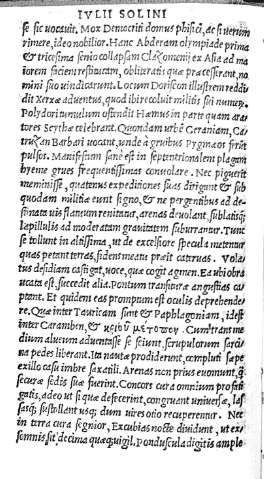 IVLII SOLINI
se sic uocauit. Mox Democriti domus phisici, ac si uerum
rimere, ideo nobilior. Hanc Abderam olympiade prima
& tricesima senio collapsam Clazomenij ex Asia ad ma
iorem faciem restitutam, obliteratis quæ præcesserant, no
mini suo uindicarunt. Locum Doriscon illustrem reddi
dit Xerxæ aduentus, quod ibi recoluit militis sui numerum.
Polydori tumulum ostendit Hæmus in parte quam ara
tores Scythæ celebrant. Quondam urbē Ceraniam, Ca
truzan Barbari uocant, unde à gruibus Pygmæos ferūt
pulsos. Manifestum sanè est in septentrionalem plagam
hyeme grues frequentissimas conuolare. Nec piguerit
meminisse, quatenus expeditiones suas dirigunt & sub
quodam militiæ eunt signo, & ne pergentibus ad de-
stinata uis flatuum renitatur, arenas deuolant, sublatisq́;
lapillulis ad moderatam grauitatem saburrantur. Tunc
se tollunt in altissima, ut de excelsiore specula metentur
quas petant terras, fidens meatu præit cateruas. Vola-
tus desidiam castigat, uoce, quæ cogit agmen. Ea ubi obra
ucata est, succedit alia. Pontum transituræ angustias ca
ptant. Et quidem eas promptum est oculis deprehende
re. Quæ inter Tauricam sunt & Paphlagoniam, id est
inter Caramben, & κριοῦ μέτωπον. Cum trant me
dium alueum aduentasse se sciunt, scrupulorum sarci-
na pedes liberant. Ita nautæ prodiderunt, compluti sæpe
ex illo casu imbre saxatili. Arenas non prius euomunt, q̃
securæ sedis suæ fuerint. Concors cura omnium pro fati
gatis, adeo ut si quæ defecerint, congruant uniuersæ, las
sasq́; sustollant usq; dum uires otio recuperentur. Nec
in terra cura segnior, Excubias nocte diuidunt, ut ex-
somnis sit decima quæq; uigil. Ponduscula digitis ample